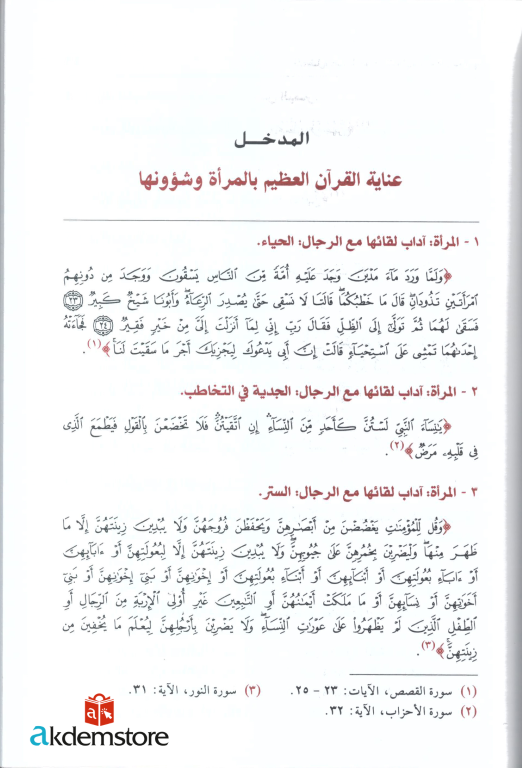 المدخـل
عناية القرآن العظيم بالمرأة وشؤونها
١ - المرأة: آداب لقائها مع الرجال: الحياء.
﴿وَلَمَّا وَرَدَ مَاءَ مَدْيَنَ وَجَدَ عَلَيْهِ أُمَّةً مِّنَ النَّاسِ يَسْقُونَ وَوَجَدَ مِن دُونِهِمُ
امْرَأَتَيْنِ تَذُودَانِ قَالَ مَا خَطْبُكُمَا قَالَتَا لَا نَسْقِي حَتَّى يُصْدِرَ الرِّعَاءُ وَأَبُونَا شَيْخٌ كَبِيرٌ ﴿٢٣﴾
فَسَقَى لَهُمَا ثُمَّ تَوَلَّى إِلَى الظِّلِّ فَقَالَ رَبِّ إِنِّي لِمَا أَنزَلْتَ إِلَيَّ مِنْ خَيْرٍ فَقِيرٌ ﴿٢٤﴾ فَجَاءَتْهُ
إِحْدَاهُمَا تَمْشِي عَلَى اسْتِحْيَاءٍ قَالَتْ إِنَّ أَبِي يَدْعُوكَ لِيَجْزِيَكَ أَجْرَ مَا سَقَيْتَ لَنَا﴾(١).
٢ - المرأة: آداب لقائها مع الرجال: الجدية في التخاطب.
﴿يَانِسَاءَ النَّبِيِّ لَسْتُنَّ كَأَحَدٍ مِّنَ النِّسَاءِ إِنِ اتَّقَيْتُنَّ فَلَا تَخْضَعْنَ بِالْقَوْلِ فَيَطْمَعَ الَّذِي
فِي قَلْبِهِ مَرَضٌ﴾(٢).
٣ - المرأة: آداب لقائها مع الرجال: الستر.
﴿وَقُل لِّلْمُؤْمِنَاتِ يَغْضُضْنَ مِنْ أَبْصَارِهِنَّ وَيَحْفَظْنَ فُرُوجَهُنَّ وَلَا يُبْدِينَ زِينَتَهُنَّ إِلَّا مَا
ظَهَرَ مِنْهَا وَلْيَضْرِبْنَ بِخُمُرِهِنَّ عَلَى جُيُوبِهِنَّ وَلَا يُبْدِينَ زِينَتَهُنَّ إِلَّا لِبُعُولَتِهِنَّ أَوْ ءَابَائِهِنَّ
أَوْ ءَابَاءِ بُعُولَتِهِنَّ أَوْ أَبْنَائِهِنَّ أَوْ أَبْنَاءِ بُعُولَتِهِنَّ أَوْ إِخْوَانِهِنَّ أَوْ بَنِي إِخْوَانِهِنَّ أَوْ بَنِي
أَخَوَاتِهِنَّ أَوْ نِسَائِهِنَّ أَوْ مَا مَلَكَتْ أَيْمَانُهُنَّ أَوِ التَّابِعِينَ غَيْرِ أُولِي الْإِرْبَةِ مِنَ الرِّجَالِ أَوِ
الطِّفْلِ الَّذِينَ لَمْ يَظْهَرُوا عَلَى عَوْرَاتِ النِّسَاءِ وَلَا يَضْرِبْنَ بِأَرْجُلِهِنَّ لِيُعْلَمَ مَا يُخْفِينَ مِن
زِينَتِهِنَّ﴾(٣).
(١) سورة القصص، الآيات: ٢٣ - ٢٥. (٣) سورة النور، الآية: ٣١.
(٢) سورة الأحزاب، الآية: ٣٢.
akdemstore